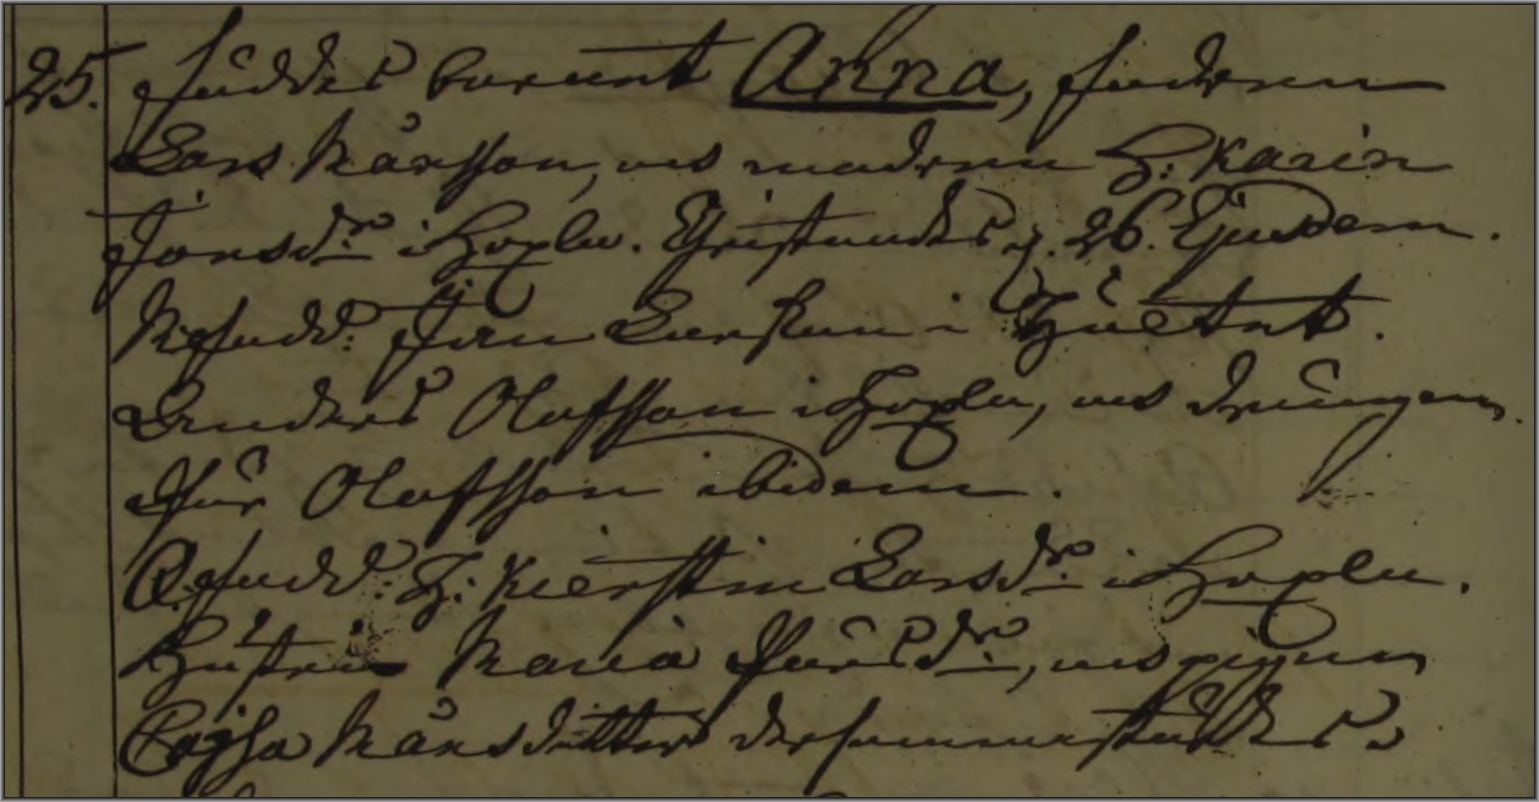 25. föddes barnet Anna, fadren
Lars Månsson, och modren H. Karin
Jonsdr i Hoplu. Christnades d. 26. Ejusdem.
M.fadd. Jan Larsson i
Anders Olofsson i Hoplu, och drängen
Pär Olofsson ibidem.
Q.fadd. H. Kierstin Larsdr i Hoplu.
Hustru Maria Pärsdr, och pigan
Cajsa Månsdotter dersammastädes.